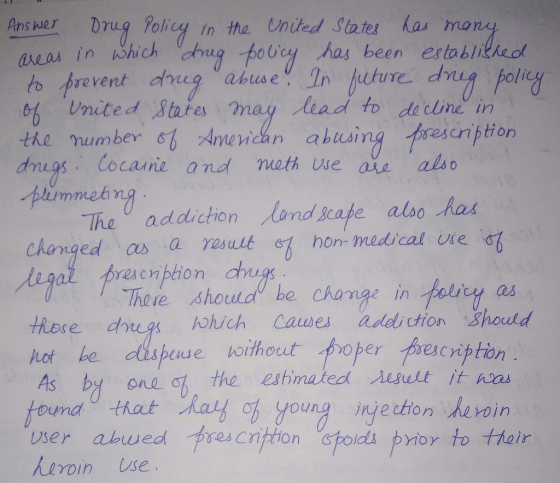 Answer Drug Policy in the United States has many
areas in which drug policy has been established
to prevent drug abuse. In future drug policy
of United States may lead to decline in
the number of American abusing prescription
drugs. Cocaine and meth use are also
plummeting.
The addiction landscape also has
changed as a result of non-medical use of
legal prescription drugs.
There should be change in policy as
those drugs which causes addiction should
not be dispense without proper prescription.
As by one of the estimated result it was
found that half of young injection heroin
user abused prescription opoids prior to their
heroin use.